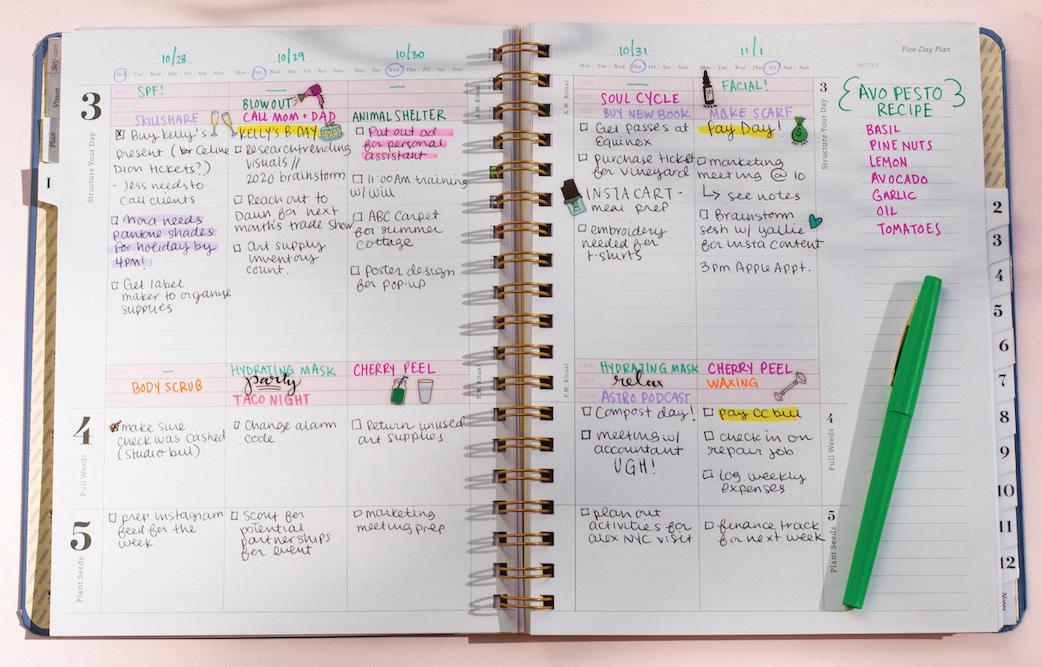 Plan
1
3
Structure Your Day
10/28
SPF!
SKILLSHARE
Buy Kelly's
present (
Celine
Dion tickets?)
- Jess needs to
call clients
Nora needs
pantone shades
for holiday by
4pm!
Get label
maker to organize
supplies
10/29
BLOWOUT
CALL MOM + DAD
KELLY'S B-DAY
Research trending
visuals //
2020 brainstorm
Reach out to
Dawn for next
month's trade show
Art supply
inventory
count.
10/30
ANIMAL SHELTER
Put out ad
for personal
assistant
11:00am training
w/ will
ABC Carpet
for summer
cottage
poster design
for pop-up
A.M. Ritual
BODY SCRUB
HYDRATING MASK
party
TACO NIGHT
CHERRY PEEL
P.M. Ritual
4
Pull Weeds
make sure
check was cashed
(studio bill)
Change alarm
code
Return unused
art supplies
5
Plant Seeds
prep instagram
feed for the
week
Scout for
potential
partnerships
for event
marketing
meeting prep
10/31
SOUL CYCLE
BUY NEW BOOK
Get passes at
Equinox
purchase ticket
for vineyard
INSTACART -
meal prep
embroidery
needed for
t-shirts
A.M. Ritual
11/1
FACIAL!
MAKE SCARF
Pay Day!
marketing
meeting @ 10
↳ see notes
Brainstorm
sesh w/ yallie
for insta content
3pm Apple Appt.
3
Structure Your Day
P.M. Ritual
HYDRATING MASK
relax
ASTRO PODCAST
CHERRY PEEL
WAXING
Compost day!
meeting w/
accountant
UGH!
pay CC bill
check in on
repair job
log weekly
expenses
4
Pull Weeds
plan out
activities for
alex NYC visit
finance track
for next week
5
Plant Seeds
Five-Day Plan
NOTES
{AVO PESTO}
RECIPE
BASIL
PINE NUTS
LEMON
AVOCADO
GARLIC
OIL
TOMATOES
2
3
4
5
6
7
8
9
10
11
12
Notes